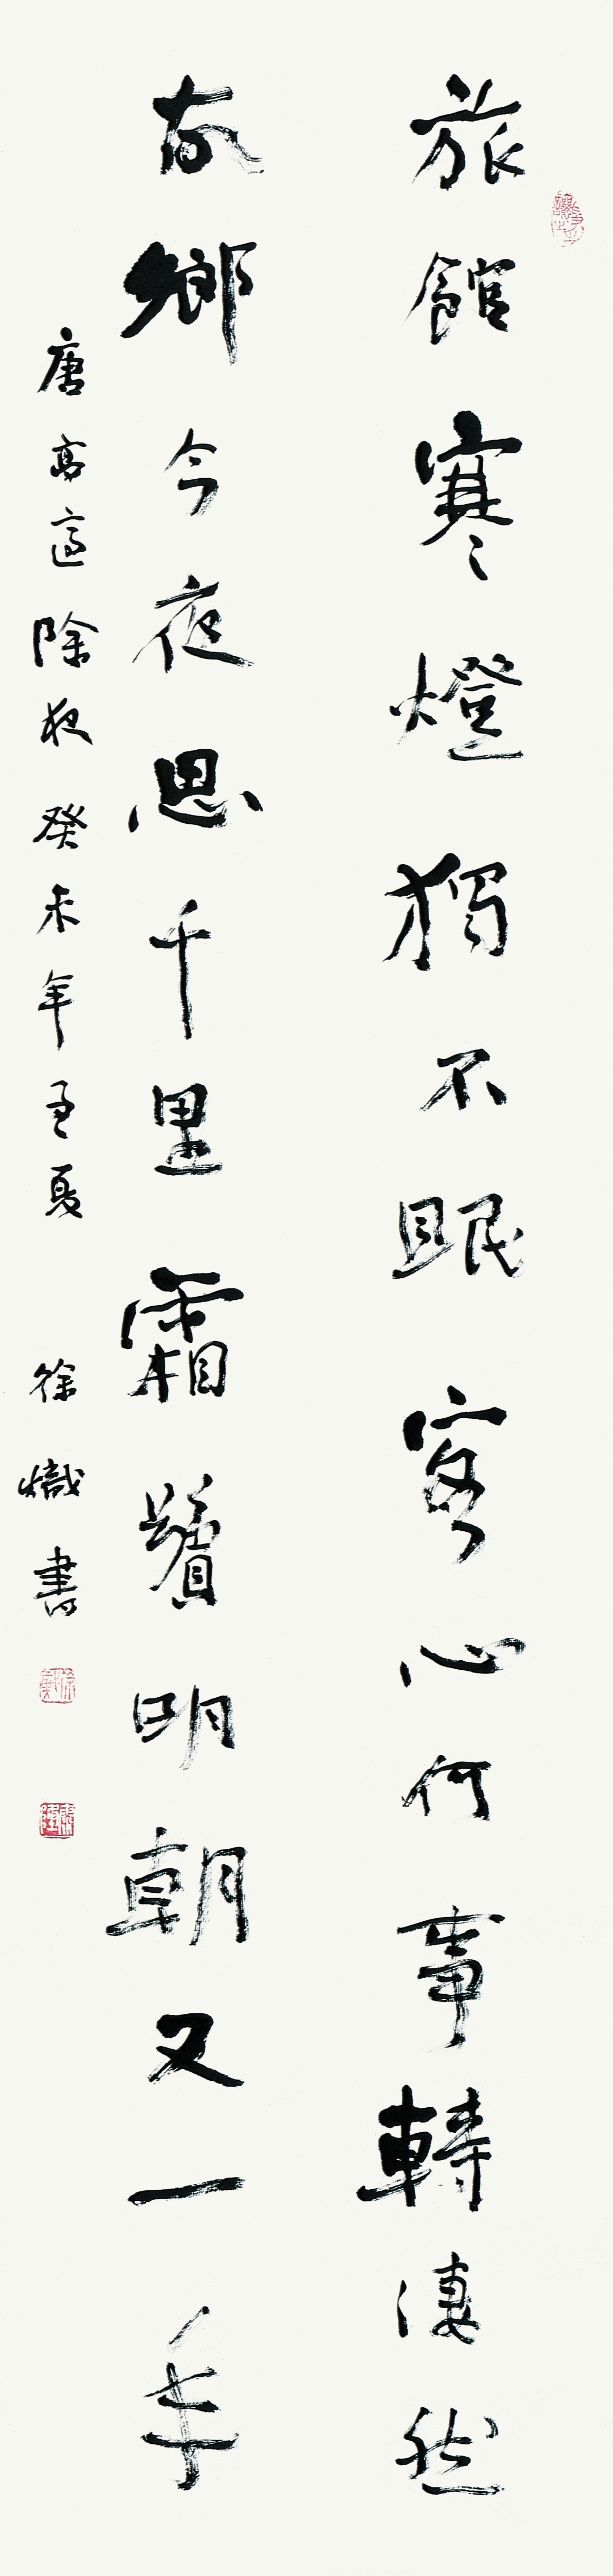 旅館寒燈獨不眠客心何事轉淒然
故鄉今夜思千里霜鬢明朝又一年
唐高適除夜癸未年孟夏 徐熾書